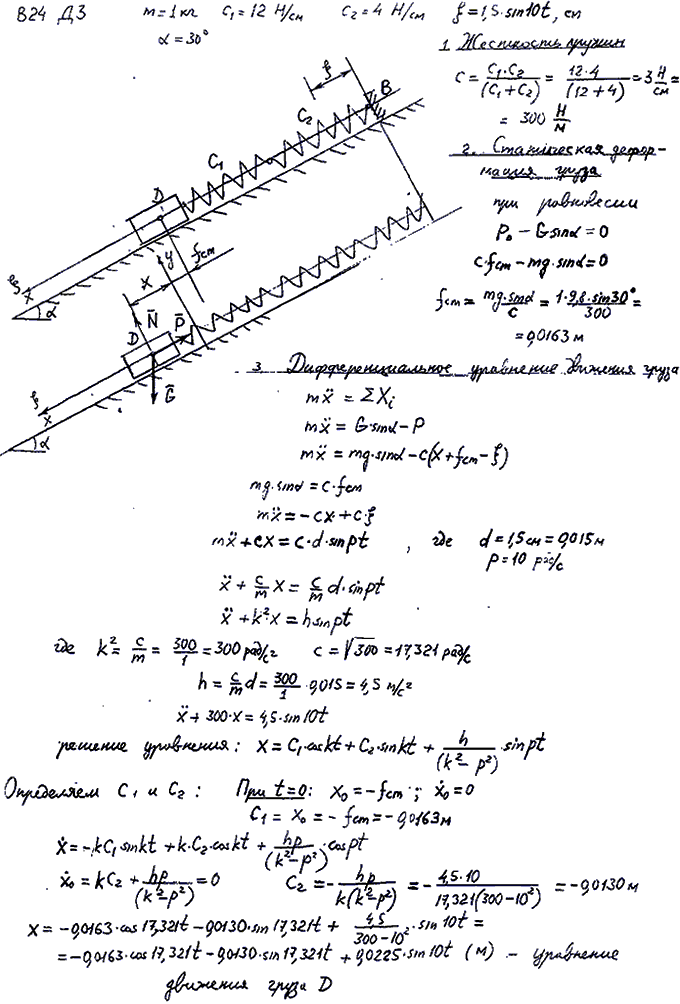 В24 Д3 m=1кг C₁=12 Н/см C₂=4 Н/см ξ=1,5·sin10t, см
α=30°
1. Жесткость пружин
C = C₁·C₂/(C₁+C₂) = 12·4/(12+4) = 3 Н/см =
= 300 Н/м
2. Статическая дефор-
мация груза
при равновесии
P₀ - G sinα = 0
c·fст - mg·sinα = 0
fст = mg·sinα/c = 1·9,8·sin30°/300 =
= 0,0163 м
ξ
B
C₂
C₁
D
fст
x
y
ξ
x
α
N̄
P̄
D
Ḡ
ξ
x
α
3. Дифференциальное уравнение движения груза
mẍ = ΣXᵢ
mẍ = G·sinα - P
mẍ = mg·sinα - c(x + fст - ξ)
mg·sinα = c·fст
mẍ = -cx + c·ξ
mẍ + cx = c·d·sinpt , где d = 1,5см = 0,015м
p = 10 рад/с
ẍ + c/m x = c/m d·sinpt
ẍ + k²·x = h sinpt
где k² = c/m = 300/1 = 300 рад/с² c = √300 = 17,321 рад/с
h = c/m d = 300/1 · 0,015 = 4,5 м/с²
ẍ + 300·x = 4,5·sin10t
решение уравнения: x = C₁·coskt + C₂·sinkt + h/(k²-p²) · sinpt
Определяем C₁ и C₂: При t=0: x₀ = -fст ; ẋ₀ = 0
C₁ = x₀ = -fст = -0,0163м
ẋ = -kC₁sinkt + k·C₂·coskt + hp/(k²-p²) · cospt
ẋ₀ = kC₂ + hp/(k²-p²) = 0 C₂ = - hp/k(k²-p²) = - 4,5·10/17,321(300-10²) = -0,0130м
x = -0,0163·cos17,321t - 0,0130·sin17,321t + 4,5/300-10² · sin10t =
= -0,0163·cos17,321t - 0,0130·sin17,321t + 0,0225·sin10t (м) - уравнение
движения груза D